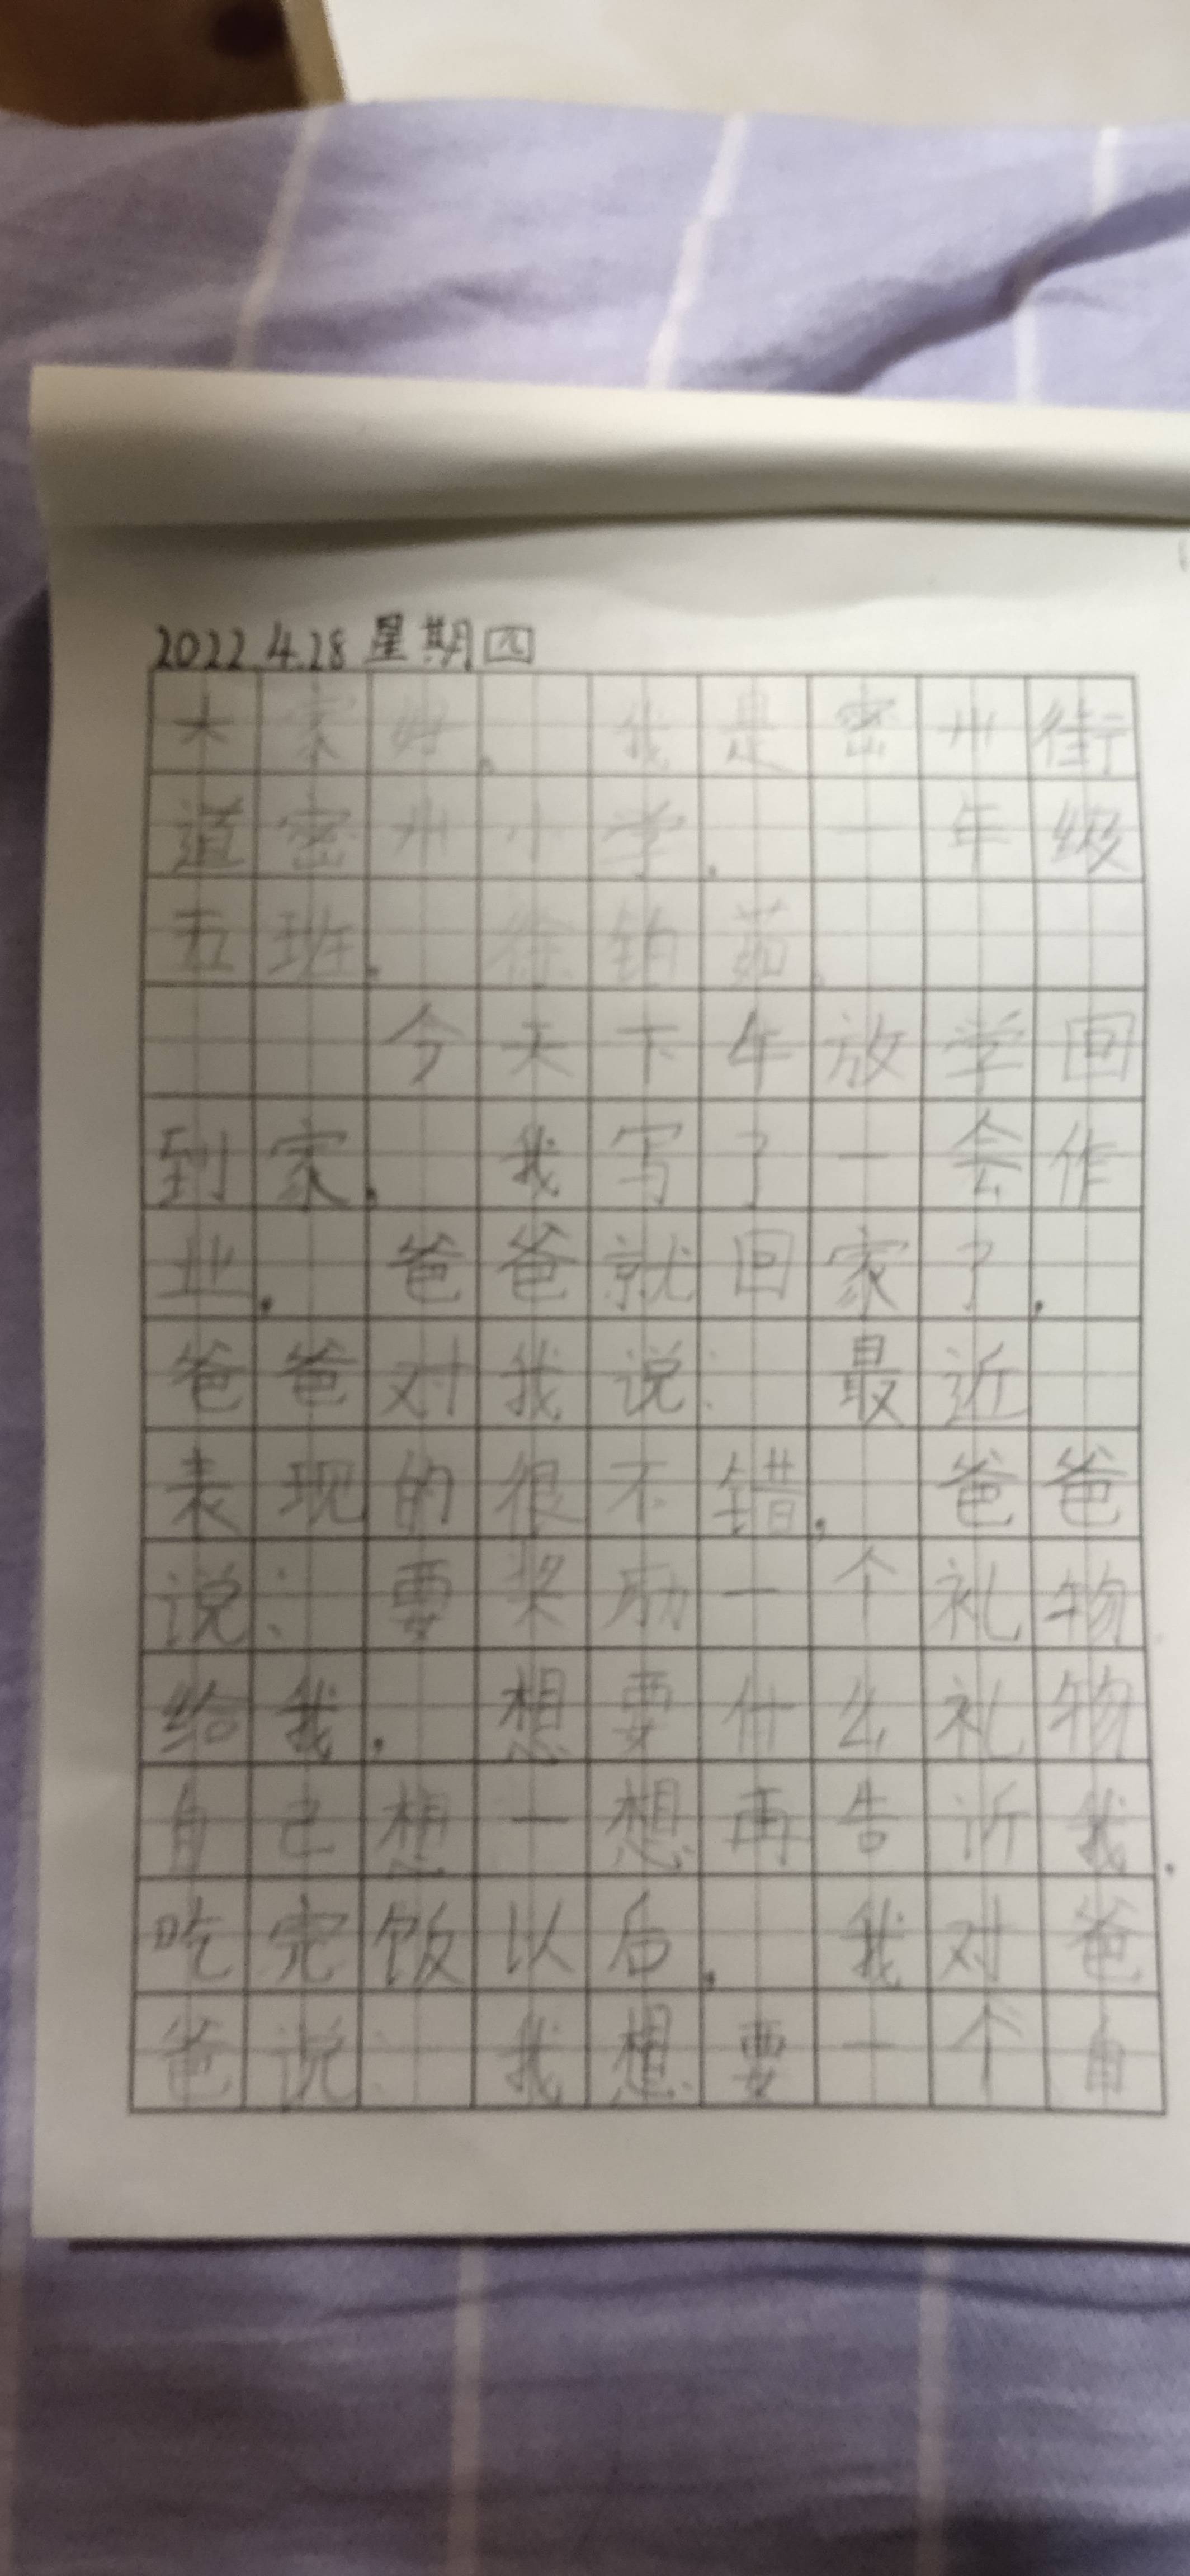 2022.4.28 星期四
大家好. 我是密州街
道密州小学. 一年级
五班. 徐钧茹.
今天下午放学回
到家. 我写了一会作
业. 爸爸就回家了.
爸爸对我说: 最近
表现的很不错. 爸爸
说: 要奖励一个礼物
给我. 想要什么礼物
自己想一想再告诉我.
吃完饭以后. 我对爸
爸说: 我想要一个自